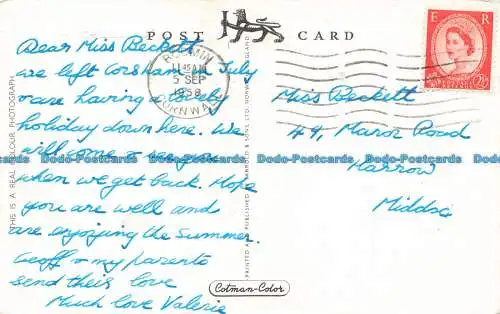 POST CARD
Dear Miss Beckett
are left Corsham in July
& are having a lovely
holiday down here. We
will come & see you
when we get back. Hope
you are well and
are enjoying the Summer.
Geoff & my parents
send their love
Much love Valerie
Miss Beckett
49, Manor Road
Harrow
Middsx
BODMIN
11 45 AM
5 SEP
1958
CORNWALL
E R
POSTAGE REVENUE
2½D
THIS IS A REAL COLOUR PHOTOGRAPH
PRINTED AND PUBLISHED BY JARROLD & SONS LTD. NORWICH, ENGLAND
Cotman-Color
Dodo-Postcards Dodo-Postcards Dodo-Postcards Dodo-Postcards